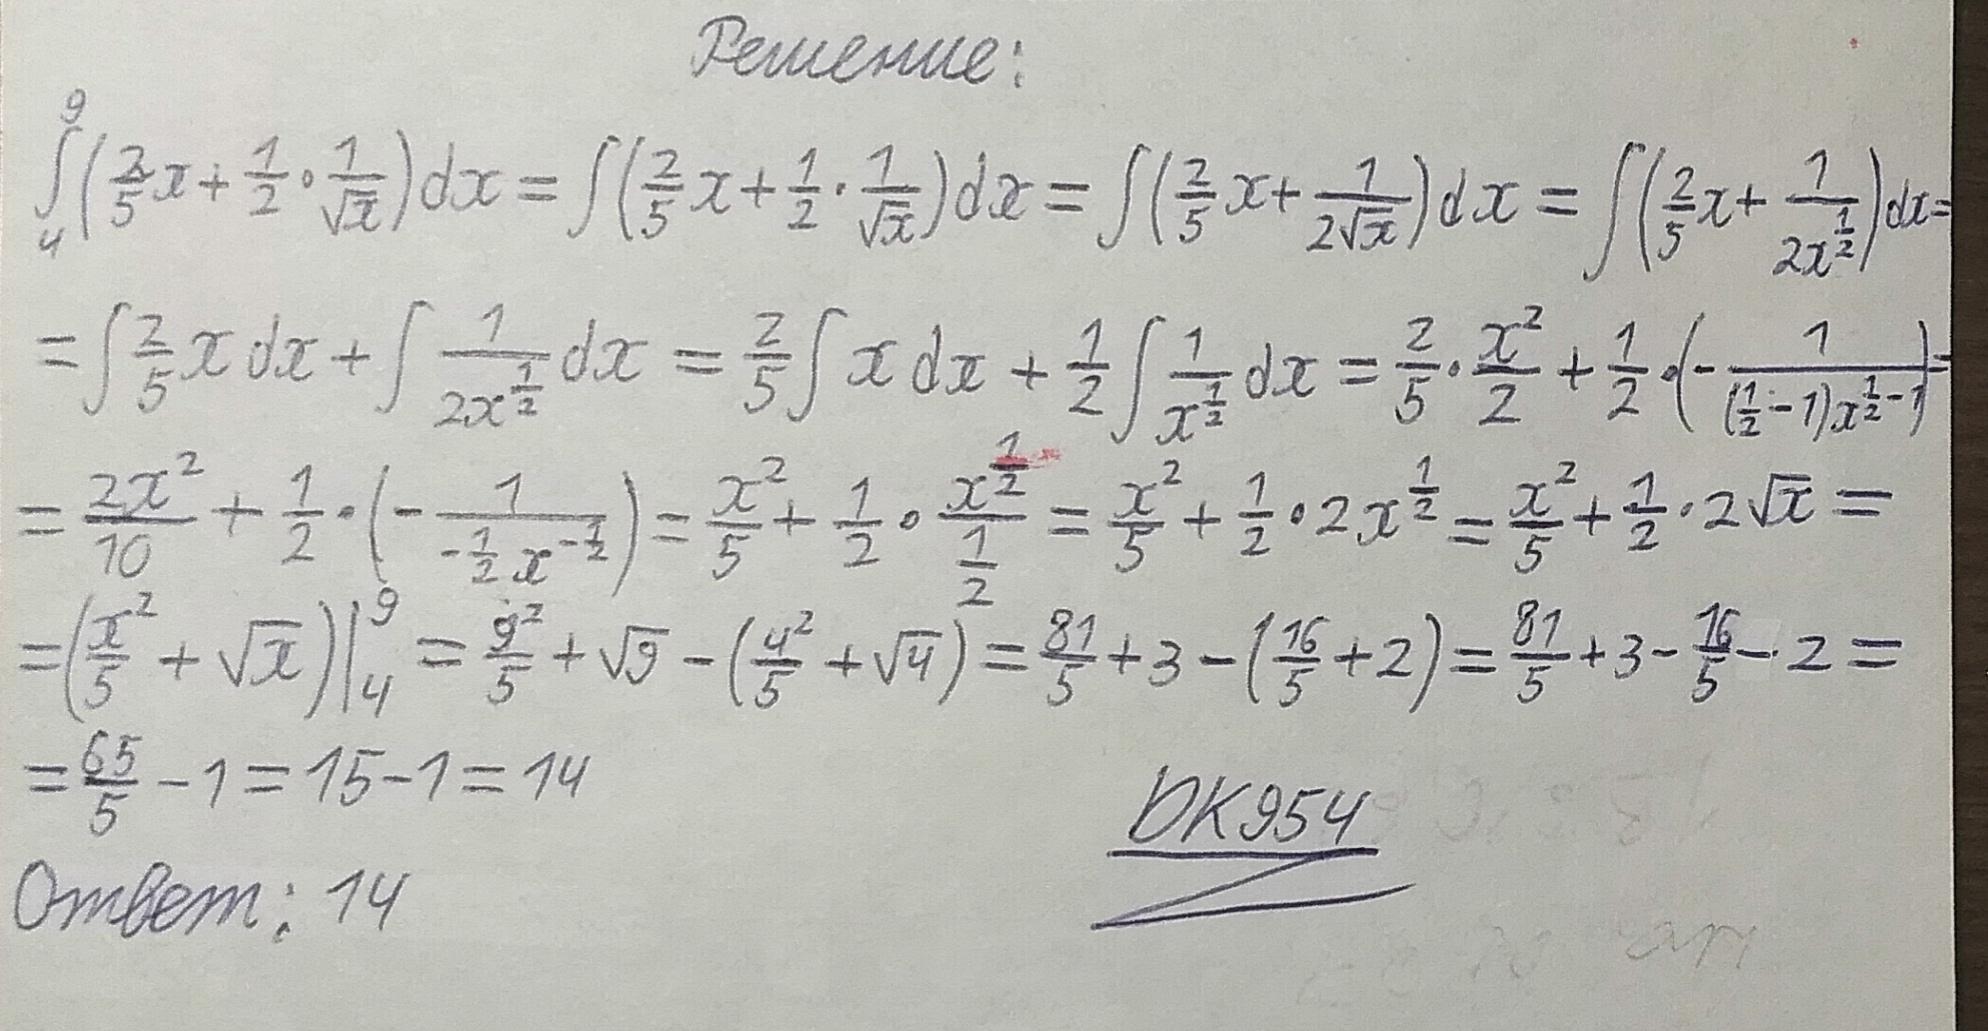 Решение:
∫₄⁹(2/5x+1/2·1/√x)dx=∫(2/5x+1/2·1/√x)dx=∫(2/5x+1/(2√x))dx=∫(2/5x+1/(2x^(1/2)))dx=
=∫2/5x dx+∫1/(2x^(1/2))dx=2/5∫x dx+1/2∫1/x^(1/2)dx=2/5·x²/2+1/2·(-1/((1/2-1)x^(1/2-1)))=
=2x²/10+1/2·(-1/(-1/2x^(-1/2)))=x²/5+1/2·x^(1/2)/(1/2)=x²/5+1/2·2x^(1/2)=x²/5+1/2·2√x=
=(x²/5+√x)|₄⁹=9²/5+√9-(4²/5+√4)=81/5+3-(16/5+2)=81/5+3-16/5-2=
=65/5-1=15-1=14
DK954
Ответ: 14